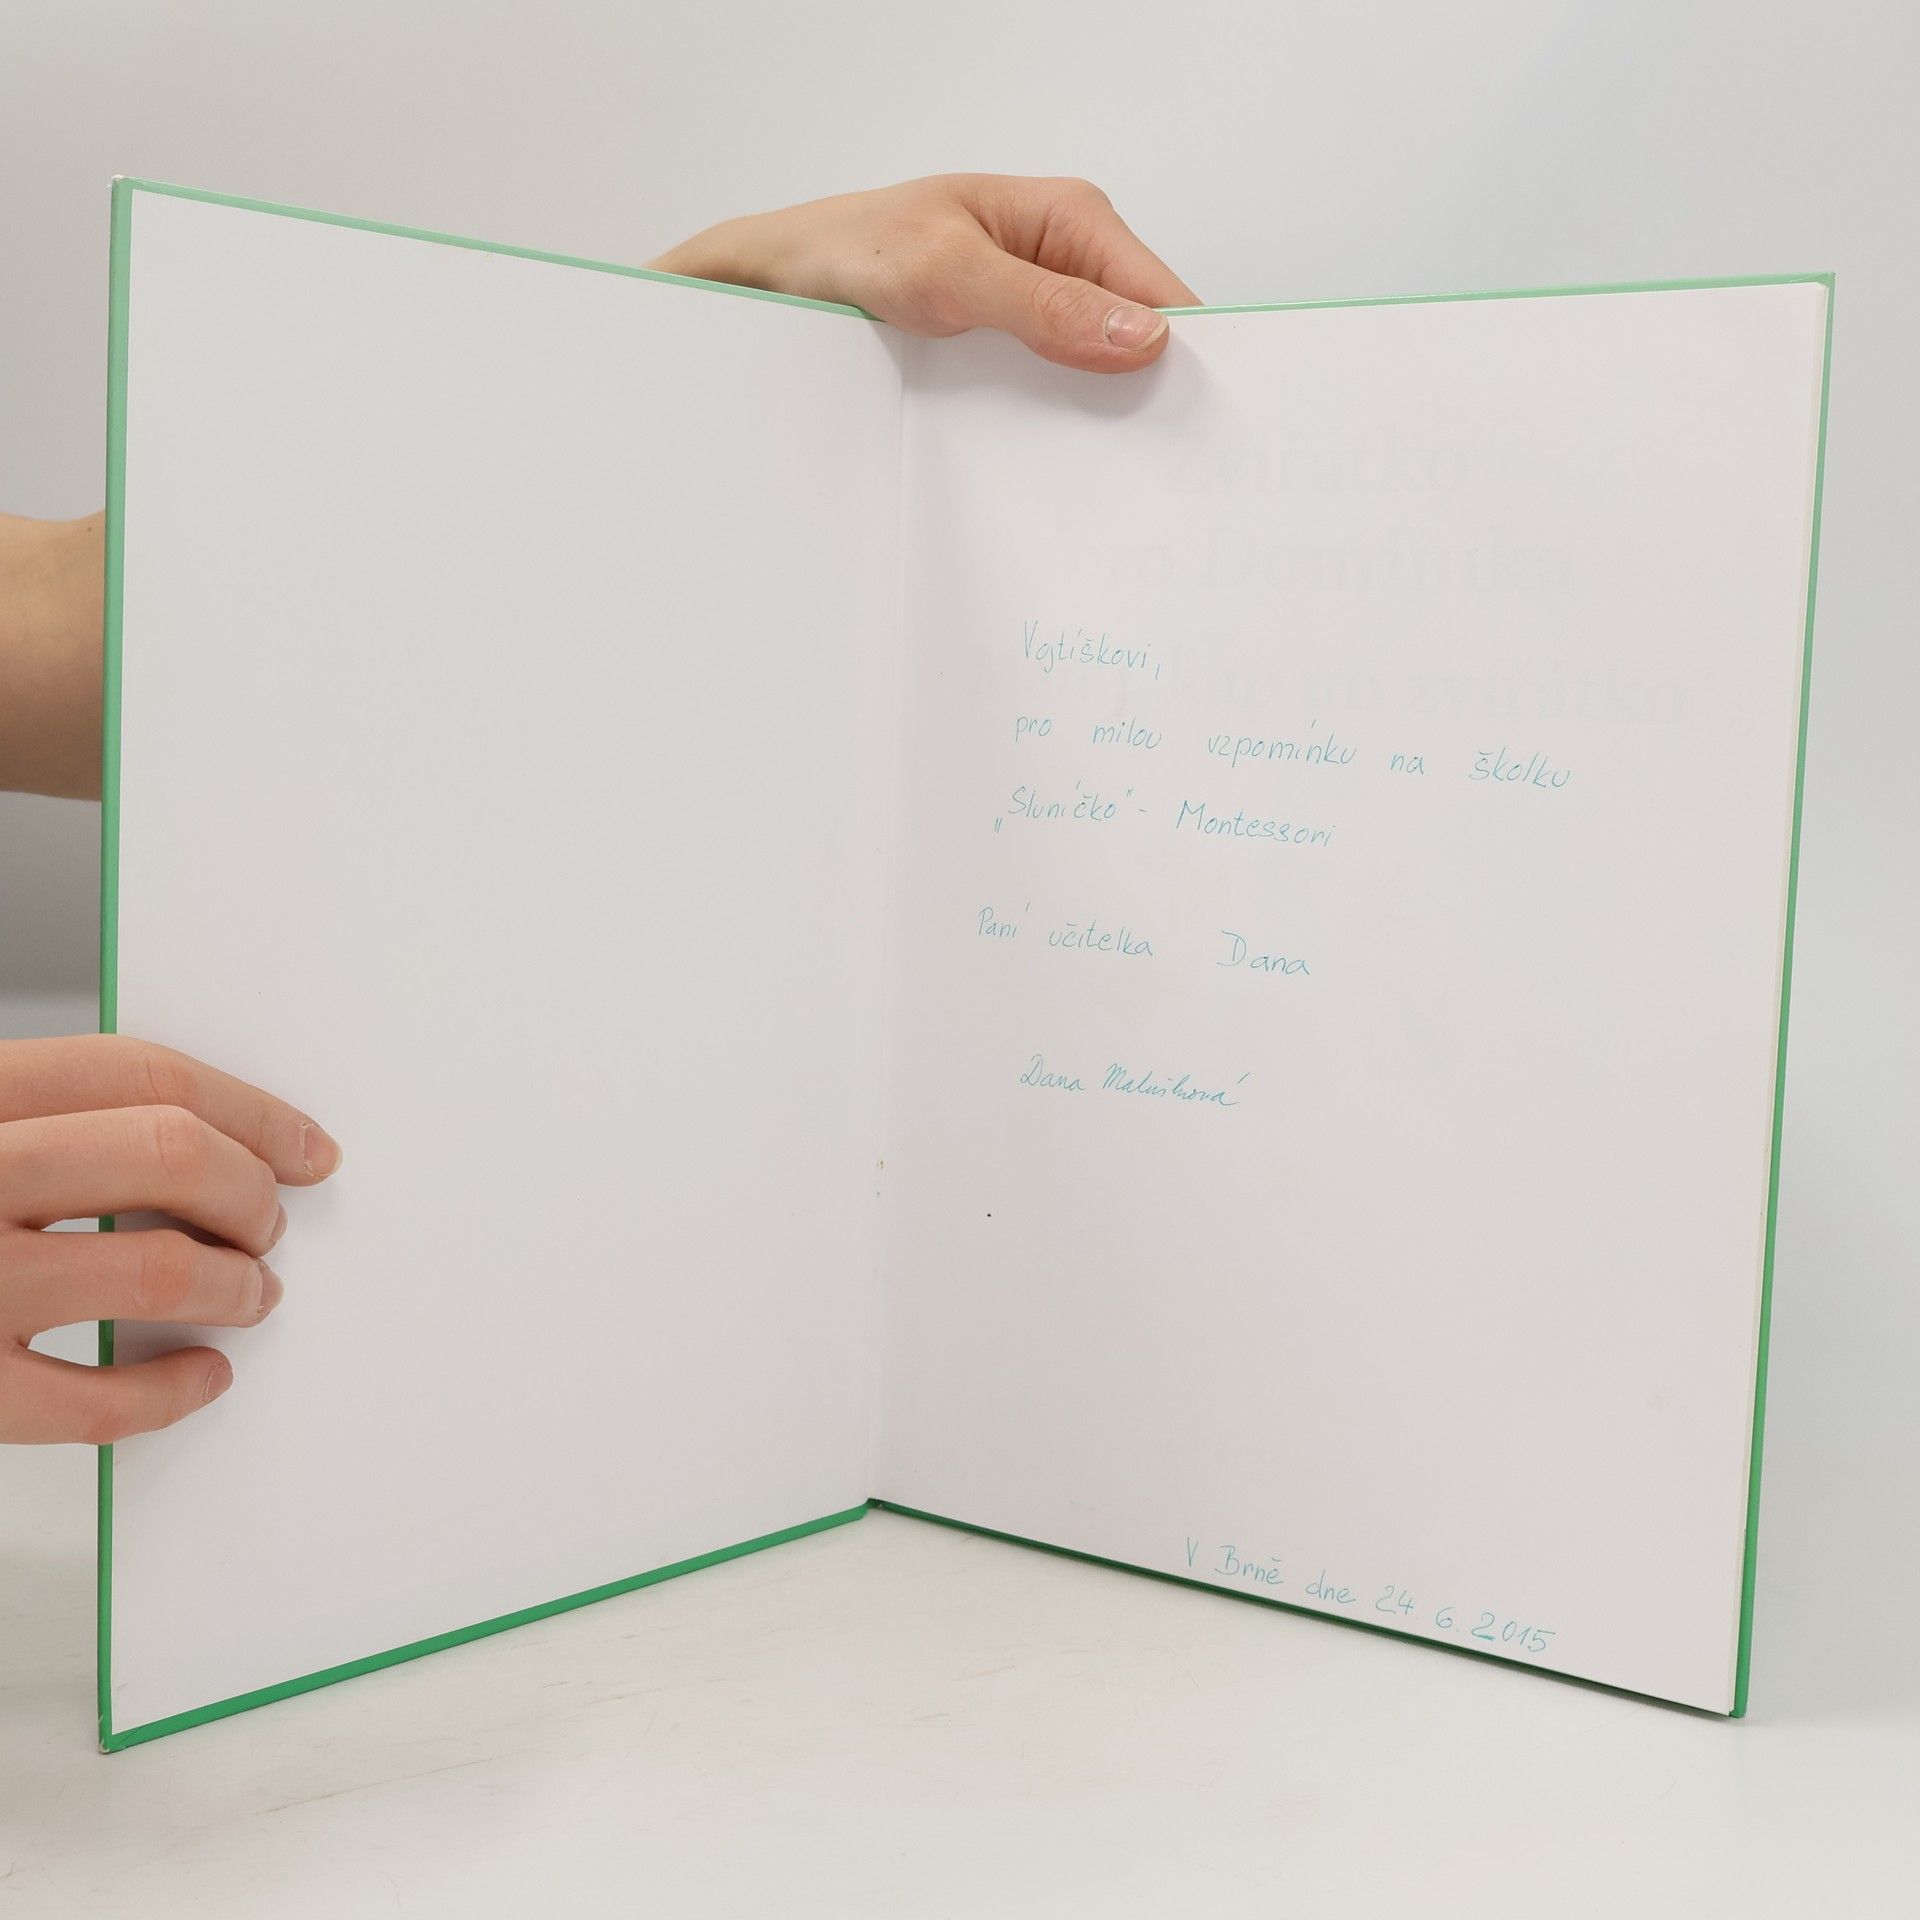 Zvířátko
pro Dominika
zvířátko
Vojtíškovi,
pro milou vzpomínku na školku
„Sluníčko" - Montessori
Paní učitelka Dana
Dana
V Brně dne 24. 6. 2015